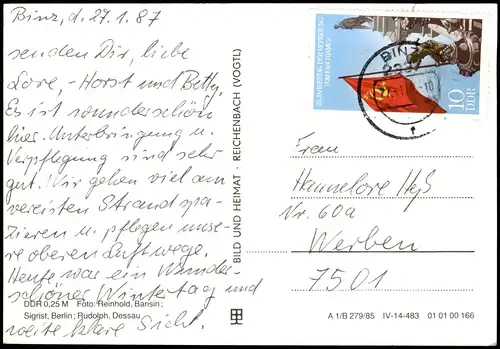 Binz, d. 27.1.87
senden Dir, liebe
Lore, - Horst und Betty.
Es ist wunderschön
hier. Unterbringung u.
Verpflegung sind sehr
gut. Wir gehen viel am
vereisten Strand spa-
zieren u. pflegen unse-
re oberen Luftwege.
Heute war ein Wunder-
schöner Wintertag und
weite klare Sicht.
DDR 0,25 M Foto: Reinhold, Bansin;
Sigrist, Berlin; Rudolph, Dessau
BILD UND HEIMAT - REICHENBACH (VOGTL)
VOM FASCHISMUS
10 DDR
BINZ
Frau
Hannelore Heß
Nr. 60a
Werben
7501
A 1/B 279/85 IV-14-483 01 01 00 166